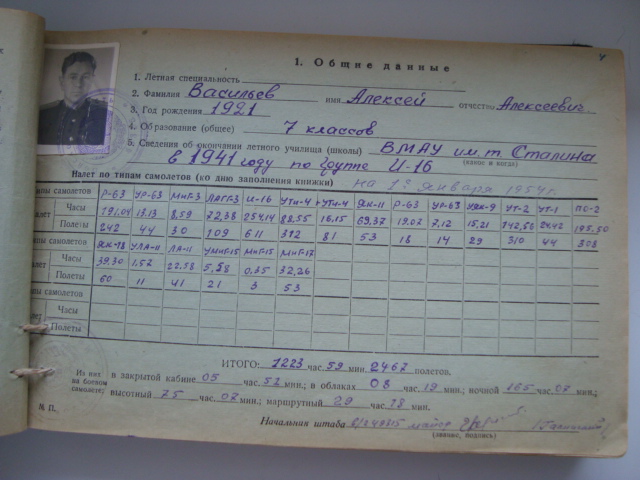 1. Общие данные
1. Летная специальность
2. Фамилия Васильев имя Алексей отчество Алексеевич
3. Год рождения 1921
4. Образование (общее) 7 классов
5. Сведения об окончании летного училища (школы) ВМАУ им. т. Сталина
(какое и когда)
в 1941 году по группе И-16
Налет по типам самолетов (ко дню заполнения книжки) на 1е января 1954г.
самолетов Р-63 УР-63 МиГ-3 ЛАГГ-3 И-16 УТи-4 УТи-4 ЯК-11 Р-63 УР-63 УЯК-9 УТ-2 УТ-1 ПО-2
Часы 191,04 13,13 8,59 72,38 254,14 88,55 16,15 69,37 19,02 7,12 15,21 142,56 24,42 195,50
Полеты 242 44 30 109 611 312 81 53 18 14 29 310 44 308
самолетов ЯК-18 УЛА-11 ЛА-11 УМиГ-15 МиГ-15 МиГ-17
Часы 39,30 1,52 22,58 5,58 0,35 32,26
Полеты 60 11 41 21 3 53
самолетов
Часы
Полеты
ИТОГО: 1223 час. 59 мин. 2467 полетов.
Из них на боевом самолете: в закрытой кабине 05 час. 52 мин.; в облаках 08 час. 19 мин.; ночной 165 час. 07 мин.;
высотный 75 час. 02 мин.; маршрутный 29 час. 18 мин.
М. П.
Начальник штаба майор
(звание, подпись)